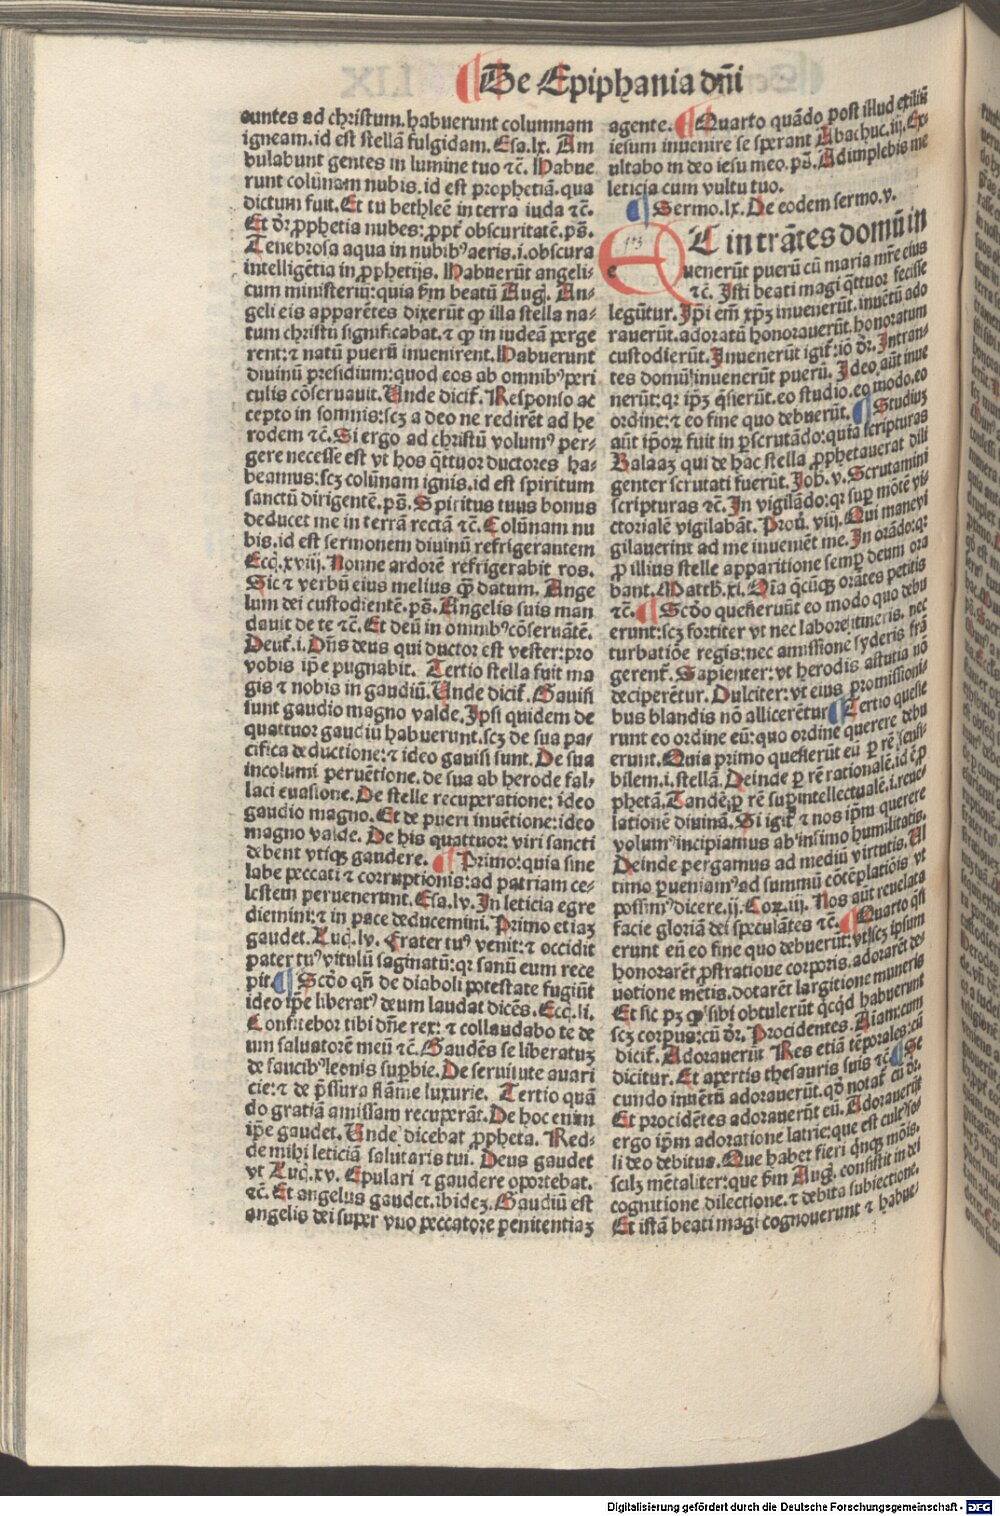 De Epiphania dñi
auntes ad christum. habuerunt columnam
igneam. id est stellã fulgidam. Esa. lx. Am
bulabunt gentes in lumine tuo ⁊c̃. Habue
runt colũnam nubis. id est prophetiã. qua
dictum fuit. Et tu bethleẽ in terra iuda ⁊c̃.
Et dr̃ ꝓphetia nubes: ꝓpt̃ obscuritatẽ. ps̃.
Tenebrosa aqua in nubibꝰ aeris. i. obscura
intelligẽtia in ꝓphetijs. Habuerũt angeli-
cum ministeriũ: quia ẜm beatũ Aug̃. An-
geli eis apparẽtes dixerũt ꝙ illa stella na-
tum christũ significabat. ⁊ ꝙ in iudeã perge
rent: ⁊ natũ puerũ inuenirent. Habuerunt
diuinũ presidium: quod eos ab omnibꝰ peri
culis cõseruauit. Unde dicit̃. Responso ac
cepto in somnis: scꝫ a deo ne redirẽt ad he
rodem ⁊c̃. Si ergo ad christũ volumꝰ per-
gere necesse est vt hos q̃ttuor ductores ha-
beamus: scꝫ colũnam ignis. id est spiritum
sanctũ dirigentẽ. ps̃. Spiritus tuus bonus
deducet me in terrã rectã ⁊c̃. Colũnam nu
bis. id est sermonem diuinũ refrigerantem
Ecc̃i. xviij. Nonne ardorẽ refrigerabit ros.
Sic ⁊ verbũ eius melius q̃ȝ datum. Ange
lum dei custodientẽ. ps̃. Angelis suis man
dauit de te ⁊c̃. Et deũ in omnibꝰ cõseruãtẽ.
Deut̃. i. Dñs deus qui ductor est vester: pro
vobis ip̃e pugnabit. Tertio stella fuit ma
gis ⁊ nobis in gaudiũ. Unde dicit̃. Gauisi
sunt gaudio magno valde. Ipsi quidem de
quattuor gaudiũ habuerunt. scꝫ de sua pa-
cifica deductione: ⁊ ideo gauisi sunt. De sua
incolumi peruẽtione. de sua ab herode fal-
laci euasione. De stelle recuperatione: ideo
gaudio magno. Et de pueri inuẽtione: ideo
magno valde. De his quattuor viri sancti
debent vtiqꝫ gaudere. Primo: quia sine
labe peccati ⁊ corruptionis: ad patriam ce-
lestem peruenerunt. Esa. lv. In leticia egre
diemini: ⁊ in pace deducemini. Primo etiaꝫ
gaudet. Luc̃. lv. Frater tuꝰ venit: ⁊ occidit
pater tuꝰ vitulũ saginatũ: qꝛ sanũ eum rece
pit. Scd̃o qñ de diaboli potestate fugiũt
ideo ip̃e liberatꝰ deum laudat dicẽs. Ecc̃i. li.
Confitebor tibi dñe rex: ⁊ collaudabo te de
um saluatorẽ meũ ⁊c̃. Gaudẽs se liberatuꝫ
de faucibꝰ leonis suꝑbie. De seruitute auari
cie: ⁊ de p̃ssura flãme luxurie. Tertio quã
do gratiã amissam recuperãt. De hoc enim
ip̃e gaudet. Unde dicebat ꝓpheta. Red-
de mihi leticiã salutaris tui. Deus gaudet
vt Luc̃. xv. Epulari ⁊ gaudere oportebat.
⁊c̃. Et angelus gaudet. ibideꝫ. Gaudiũ est
angelis dei super vno peccatore penitentiaꝫ
agente. Quarto quãdo post illud exiliũ
iesum inuenire se sperant Abachuc. iij. Ex-
ultabo in deo iesu meo. ps̃. Adimplebis me
leticia cum vultu tuo.
Sermo. lx. De eodem sermo. v.
ET intrãtes domũ in
e uenerũt puerũ cũ maria mr̃e eius
⁊c̃. Isti beati magi q̃ttuor fecisse
legũtur. Ip̃i em̃ xp̃ꝫ inuenerũt. inuẽtũ ado
rauerũt. adoratũ honorauerũt. honoratum
custodierũt. Inuenerũt igit̃: iõ dr̃. Intran-
tes domũ inuenerũt puerũ. Ideo aũt inue
nerũt: qꝛ ip̃ꝫ q̃sierũt. eo studio. eo modo. eo
ordine: ⁊ eo fine quo debuerũt. Studiuꝫ
aũt ip̃oꝝ fuit in ꝑscrutãdo: quia scripturas
Balaaꝫ qui de hac stella ꝓphetauerat dili
genter scrutati fuerũt. Joh̃. v. Scrutamini
scripturas ⁊c̃. In vigilãdo: qꝛ suꝑ mõtẽ vi-
ctorialẽ vigilabãt. Prou̓. viij. Qui mane vi
gilauerint ad me inueniẽt me. In orãdo: qꝛ
ꝓ illius stelle apparitione semꝑ deum ora
bant. Matth̃. xi. Oĩa q̃cũqꝫ orãtes petitis
⁊c̃. Scd̃o quesierũt eo modo quo debu
erunt: scꝫ fortiter vt nec labore itineris. nec
turbatiõe regis: nec amissione syderis frã
gerent̃. Sapienter: vt herodis astutia nõ
deciperẽtur. Dulciter: vt eius ꝓmissioni-
bus blandis nõ allicerẽtur. Tertio quesie
runt eo ordine eũ: quo ordine querere debu
erunt. Quia primo quesierũt eũ ꝑ rẽ sensi-
bilem. i. stellã. Deinde ꝑ rẽ rationalẽ. id ẽ ꝓ
phetã. Tandẽ ꝑ rẽ suꝑintellectualẽ. i. reue-
lationẽ diuinã. Si igit̃ ⁊ nos ip̃m querere
volumꝰ incipiamus ab infimo humilitatis.
Deinde pergamus ad mediũ virtutis. Ul
timo ꝑueniamꝰ ad summũ cõtẽplatiõis vt
possimꝰ dicere. ij. Coꝝ. iij. Nos aũt reuelata
facie gloriã dei speculãtes ⁊c̃. Quarto q̃si
erunt eũ eo fine quo debuerũt: vt scꝫ ipsum
honorarẽt ꝓstratione corporis. adorarẽt de-
uotione mẽtis. dotarẽt largitione muneris
Et sic pꝫ ꝙ sibi obtulerũt q̃cq̃d habuerunt
scꝫ corpus: cũ dr̃. Procidentes. Aiam: cum
dicit̃. Adorauerũt Res etiã tẽporales: cũ
dicitur. Et apertis thesauris suis ⁊c̃. Se
cundo inuẽtũ adorauerũt. qd̃ notat̃ cũ dr̃.
Et procidẽtes adorauerũt eũ. Adorauerũt
ergo ip̃m adoratione latrie: que est cultꝰ so-
li deo debitus. Que habet fieri q̃nqꝫ mõis.
scilꝫ mẽtaliter: que ẜm Aug̃. consistit in dei
cognitione dilectione. ⁊ debita subiectione.
Et istã beati magi cognouerunt ⁊ habue-
Digitalisierung gefördert durch die Deutsche Forschungsgemeinschaft - DFG